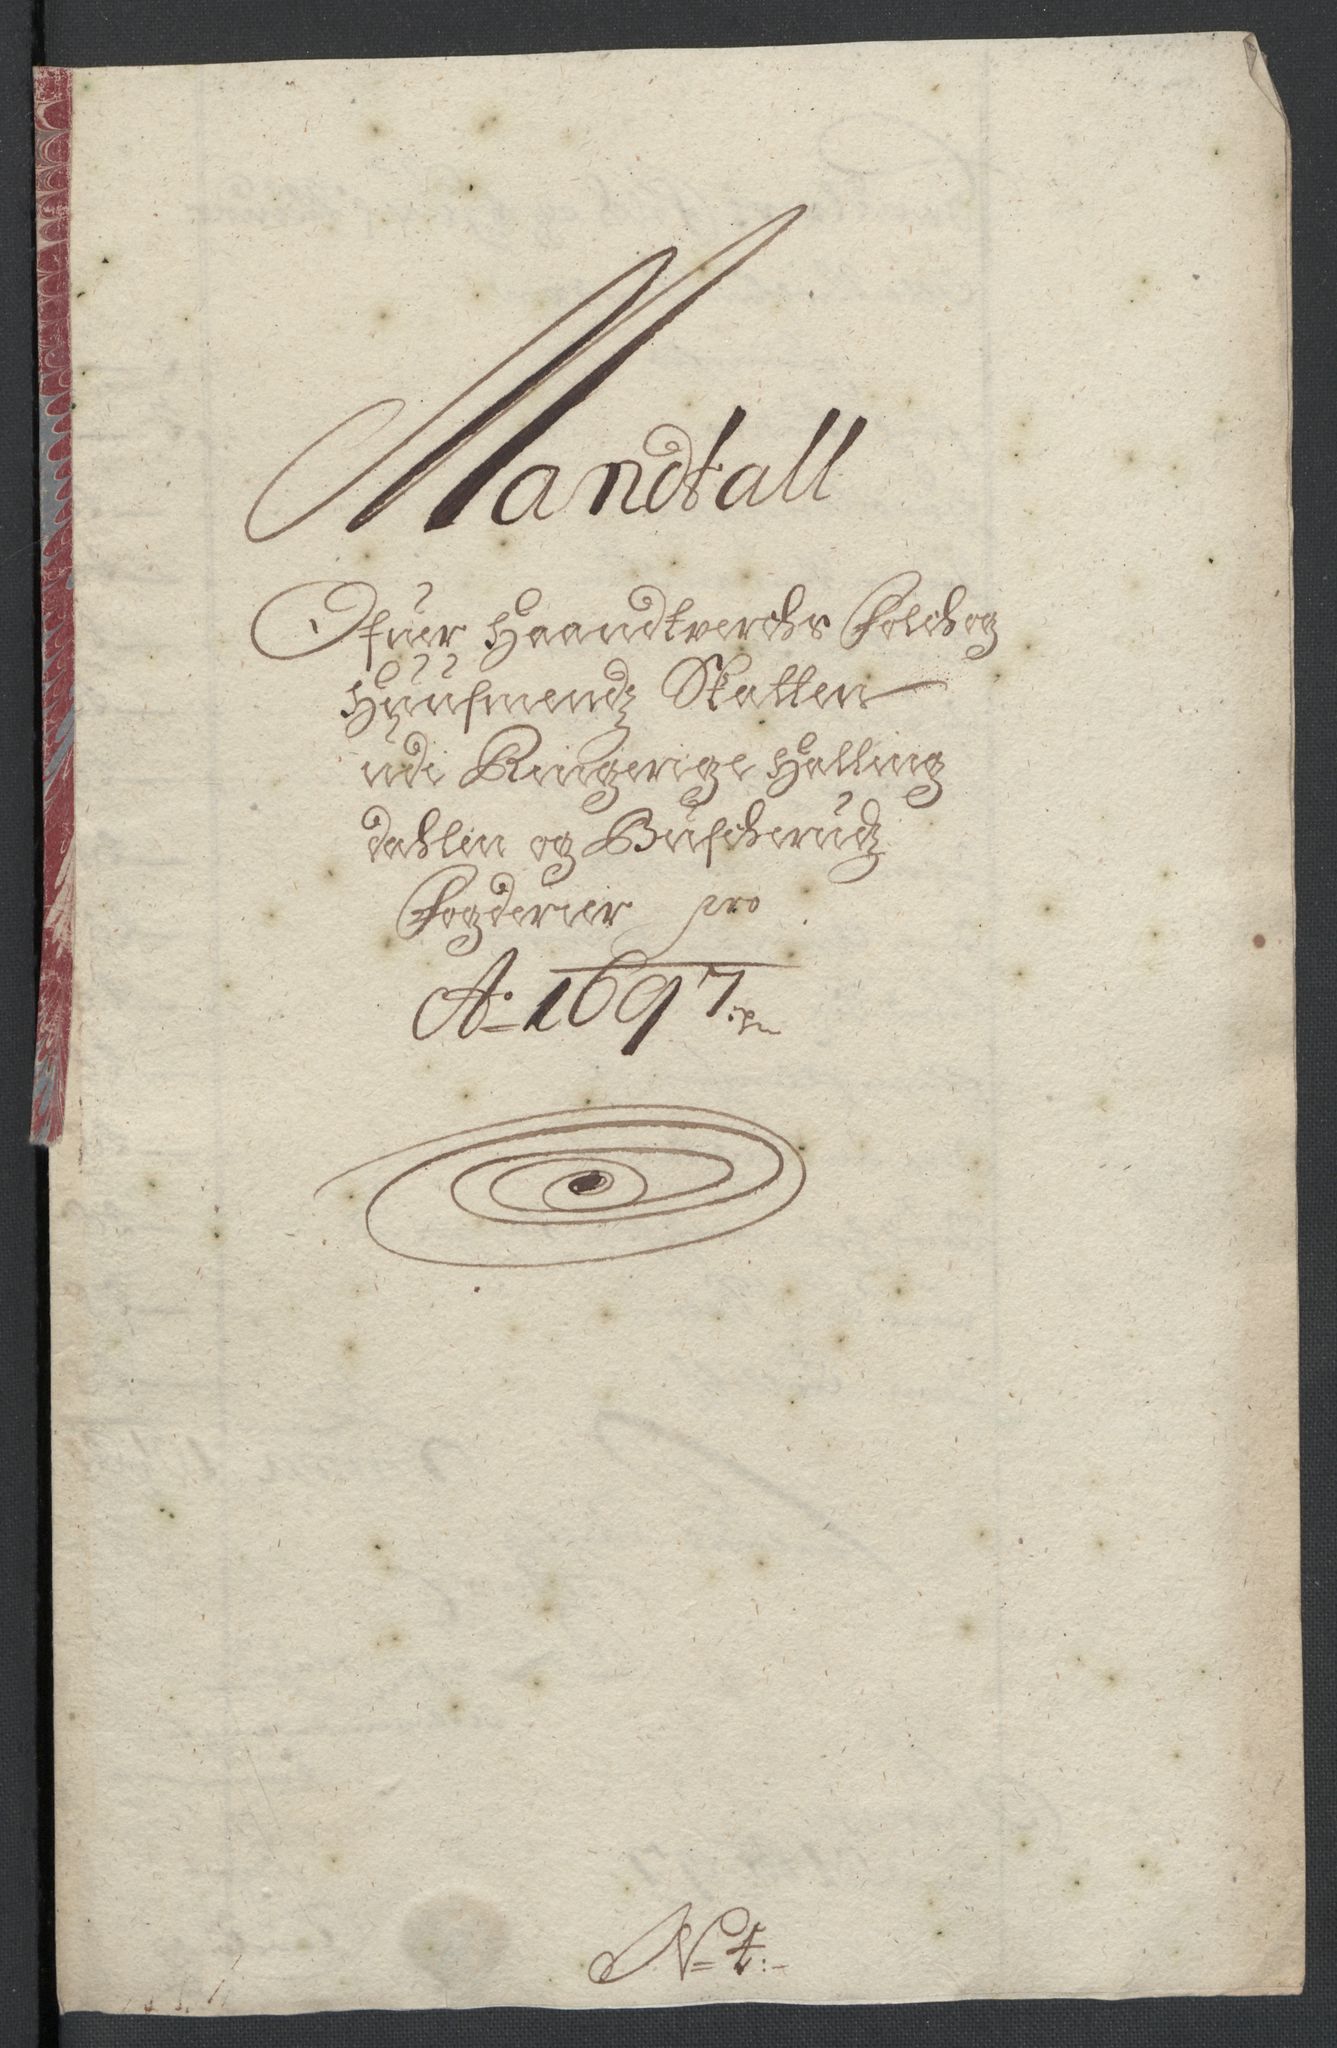 Mandtall
Ofuer Haandtverchs Folch og
Huusmendz Skatten
udi Ringerige Halling
dahlen og Buscherudz
Fogderier pro
Ao 1697
No 4: